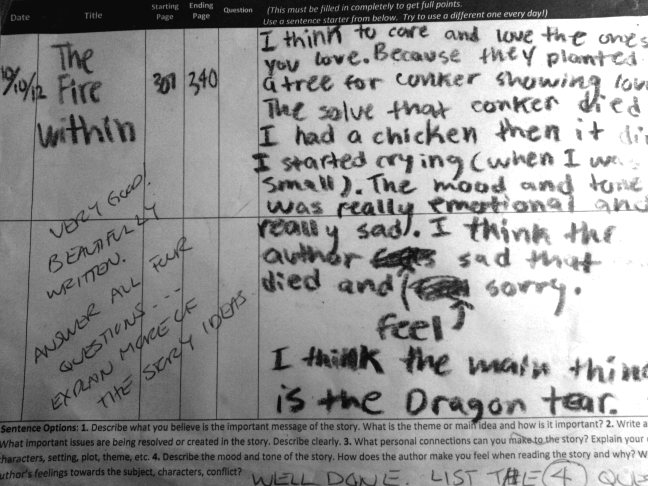 Date Title Starting Page Ending Page Question (This must be filled in completely to get full points.
Use a sentence starter from below. Try to use a different one every day!)
10/10/12 The Fire within 307 340
I think to care and love the ones
you love. Because they planted
a tree for conker showing
The solve that conker died
I had a chicken then it
I started crying (when I was
small). The mood and tone
was really emotional and
really sad. I think the
author sad that
died and feel sorry.
I think the main thing
is the Dragon tear.
VERY GOOD!
BEAUTIFULLY
WRITTEN.
ANSWER ALL FOUR
QUESTIONS...
EXPLAIN MORE OF
THE STORY IDEAS
Sentence Options: 1. Describe what you believe is the important message of the story. What is the theme or main idea and how is it important? 2. Write a
What important issues are being resolved or created in the story. Describe clearly. 3. What personal connections can you make to the story? Explain your
characters, setting, plot, theme, etc. 4. Describe the mood and tone of the story. How does the author make you feel when reading the story and why? W
author's feelings towards the subject, characters, conflict?
WELL DONE. LIST THE 4